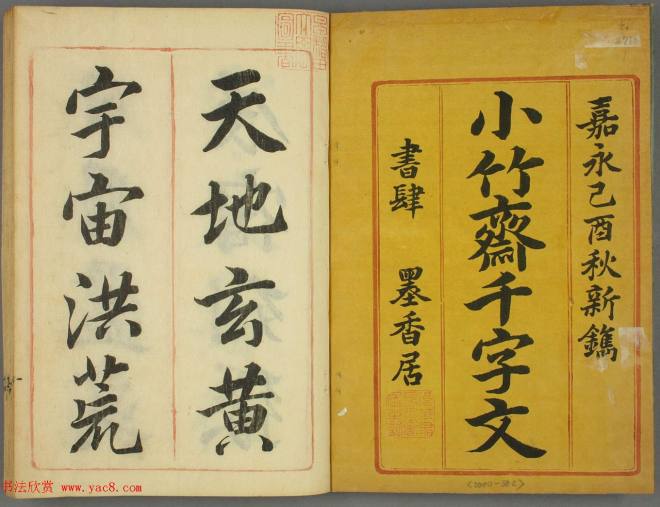 嘉永己酉秋新鐫
小竹齋千字文
書肆 墨香居
天地玄黄
宇宙洪荒
书法欣赏 www.yac8.com